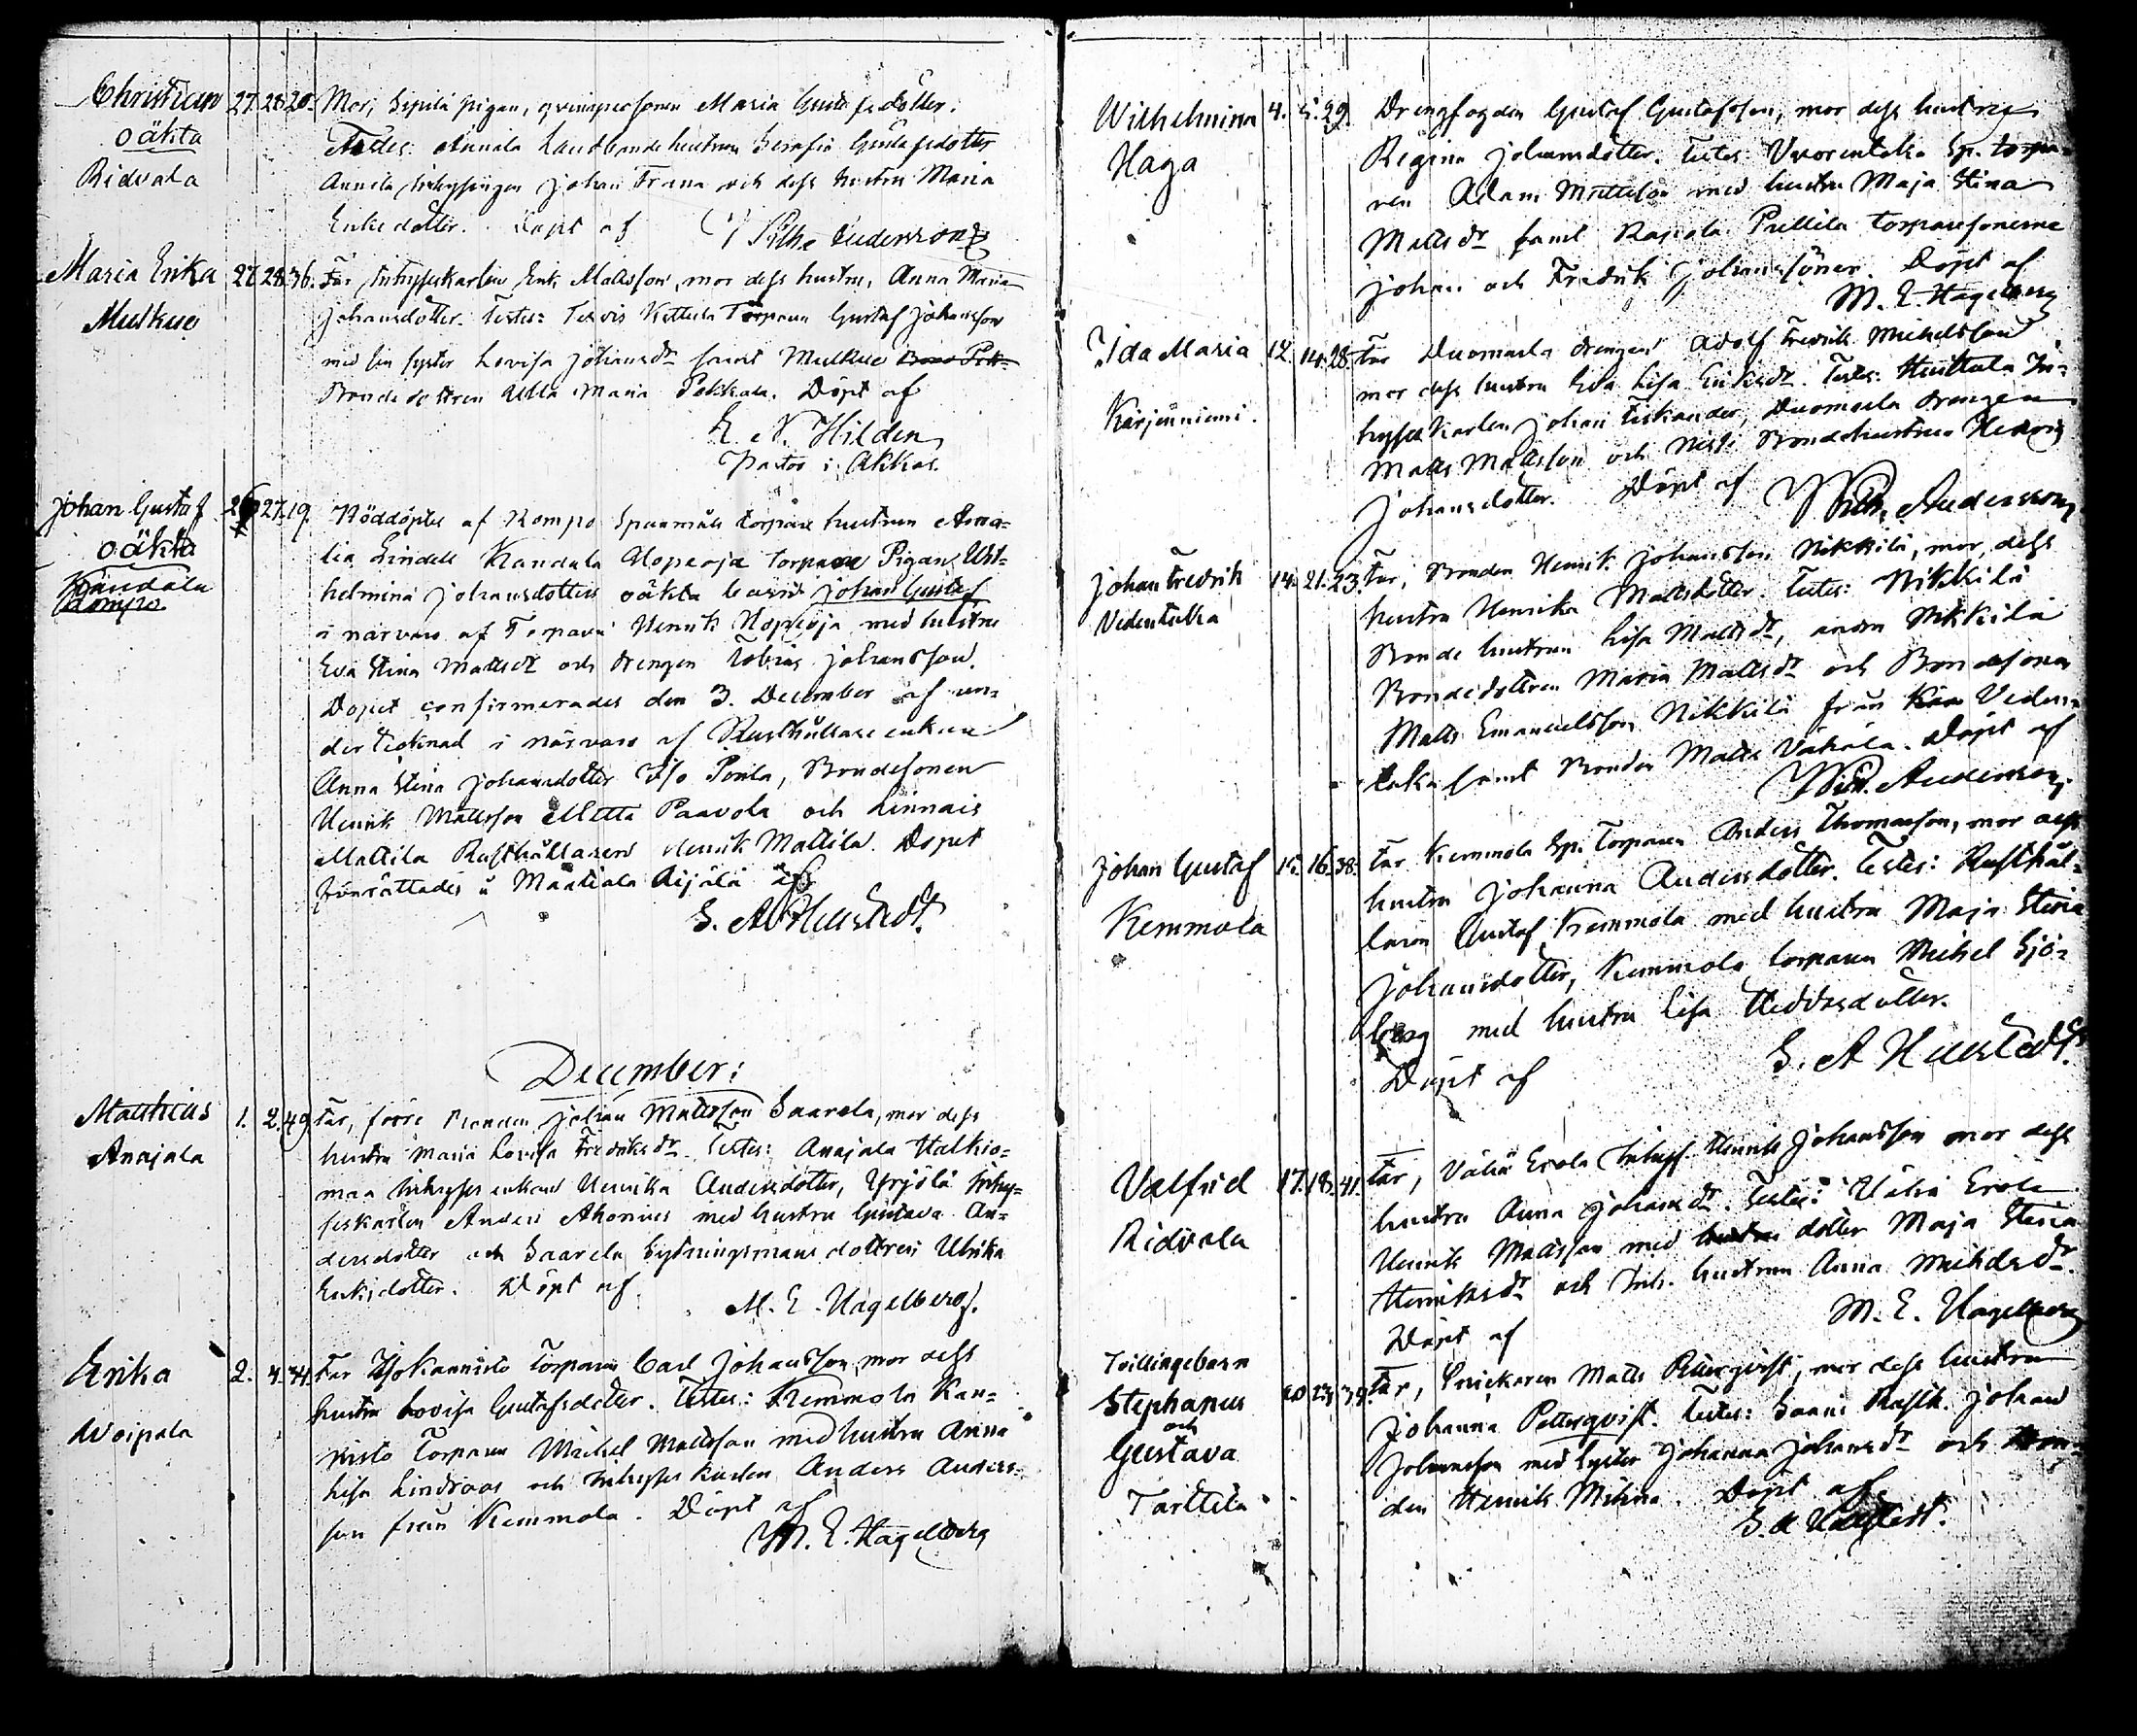 Christian 27. 28. 20. Mor, Sipilä pigan, qvinspersonen Maria Gustafsdotter.
oäkta Testes: Annala Landbonde hustrun Serafia Gustafsdotter
Ridvala Annila Inhysingen Johan Frana och dess hustru Maria
Eriksdotter. Döpt af Wilh. Andersson
Maria Erika 27. 28. 36. Far, Inhyseskarlen Erik Mattsson, mor dess hustru, Anna Maria
Mulkue Johansdotter. Testes: Tervis Kettula Torparn Gustaf Johansson
med sin syster Lovisa Johansdr samt Mulkue
Bondedottren Ulla Maria Pekkala. Döpt af
E. N. Hilden
Pastor i Akkas.
Johan Gustaf 26 27. 19. Nöddöptes af Rompo Spannmåls torpare hustrun Ama-
oäkta lia Lindell Kandala Hopeoja torpare Pigan Wil-
Kandala helmina Johansdotters oäkta barn Johan Gustaf
Rompo i närvaro af Torparn Henrik Hopeoja med hustru
Eva Stina Mattsdr och drengen Tobias Johansson.
Dopet confirmerades den 3. December af un-
dertecknad i närvaro af Rusthållare enkan
Anna Stina Johansdotter Iso Pentla, Bondesonen
Henrik Mattsson Metta Paavola och Linnais
Mattila Rusthållaren Henrik Mattila. Dopet
förrättades å Maatiala Äijälä af
G. A. Hallstedt.
December:
Matthias 1. 2. 49. Far, förre Bonden Johan Mattsson Saarela, mor dess
Anajala hustru Maria Lovisa Fredriksdr. Testes: Anajala Valkio-
maa Inhyses enkan Henrika Andersdotter, Yrjölä Inhy-
seskarlen Anders Ahonius med hustru Gustava An-
dersdotter och Saarela Sytningsmans dottren Ulrika
Eriksdotter. Döpt af
M. E. Hagelberg.
Erika 2. 4. 34. Far Kannisto Torparen Carl Johansson, mor dess
Woipala hustru Lovisa Gustafsdotter. Testes: Kemmola Kan-
nisto Torparen Michel Mattsson med hustru Anna
Lisa Lindroos och Inhyses karlen Anders Anders-
son från Kemmola. Döpt af
M. E. Hagelberg
Wilhelmina 4. 5. 29. Drengfogden Gustaf Gustafsson, mor dess hustru
Haga Regina Johansdotter. Testes: Vuorentaka Sp. torpa-
ren Adam Mattsson med hustru Maja Stina
Mattsdr samt Rapola Prellilä torparesönerne
Johan och Fredrik Johanssöner. Döpt af
M. E. Hagelberg
Ida Maria 12. 14. 28. Far Duomarla drengen Adolf Fredrik Michelsson,
mor dess hustru Eva Lisa Eriksdr. Testes: Huittula In-
Kärjenniemi. hyses karlen Johan Fiskander, Duomarla drengen
Matts Mattsson och Bondehustrun Hedvig
Johansdotter. Döpt af Wilh. Andersson
Johan Fredrik 14. 21. 23. Far, Bonden Henrik Johansson Nikkilä, mor, dess
Vedentaka hustru Henrika Mattsdotter. Testes: Nikkilä
Bonde hustrun Lisa Mattsdr, andra Nikkilä
Bondedottren Maria Mattsdr och Bondesonen
Matts Emanuelsson Nikkilä från Veden-
taka samt Bonden Matts Vähälä. Döpt af
Wilh. Andersson.
Johan Gustaf 15. 16. 38. Far Kemmola Sp. Torparen Anders Thomasson, mor dess
Kemmola hustru Johanna Andersdotter. Testes: Rusthål-
laren Gustaf Kemmola med hustru Maja Stina
Johansdotter, Kemmola torparen Michel Sjö-
berg med hustru Lisa Heddasdotter.
Döpt af G. A. Hallstedt.
Valfrid 17. 18. 41. Far, Vähä Erola Inhys. Henrik Johansson mor dess
Ridvala hustru Anna Johansdr. Testes: Vähä Erola
Henrik Mattsson med dotter Maja Stina
Henriksdr och Inh. hustrun Anna Michelsdr.
Döpt af M. E. Hagelberg
Tvillingebarn
Stephanus 20 23 39. Far, Snickaren Matts, mor dess hustru
och Johanna Pettersqvist. Testes: Saaris Rusth. Johan
Gustava Johansson med syster Johanna Johansdr och Bon-
Tarttila den Henrik. Döpt af
G. A. Hallstedt.